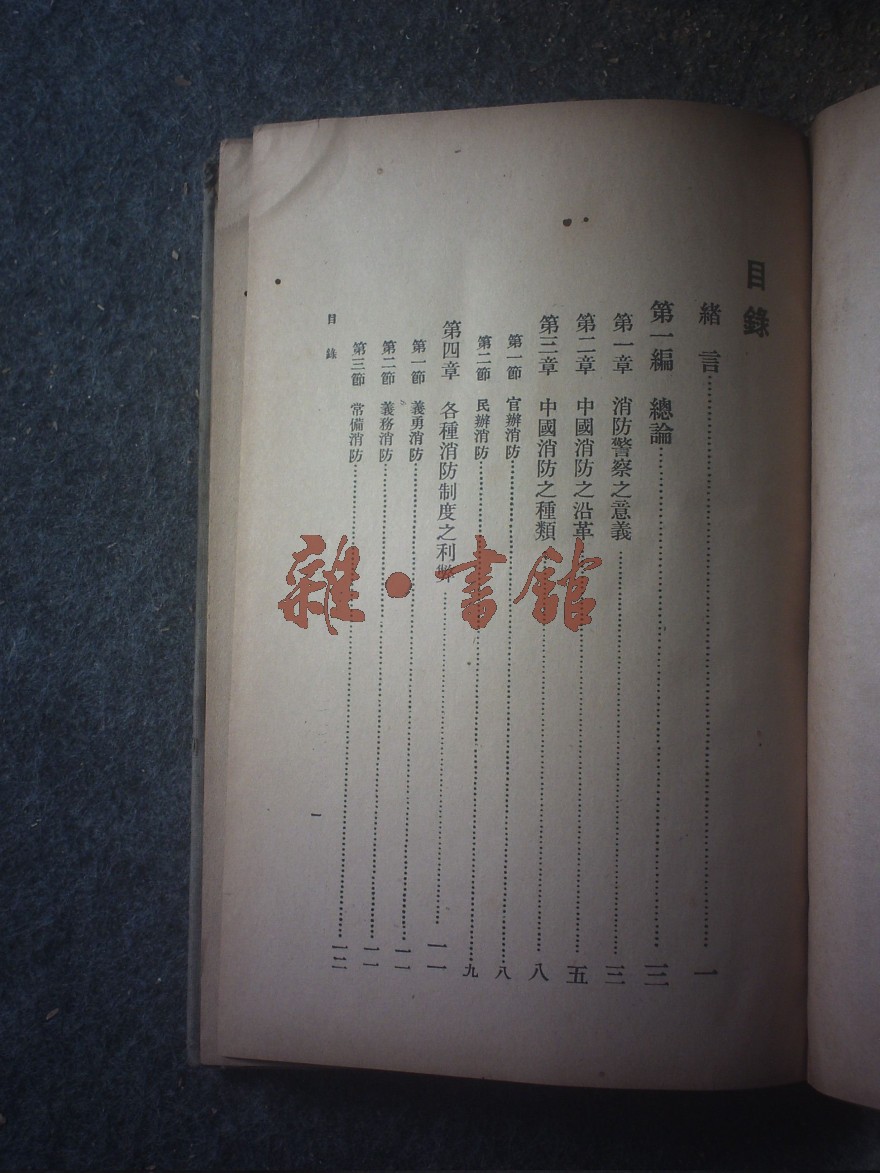 目錄
緒言 一
第一編 總論 三
第一章 消防警察之意義 三
第二章 中國消防之沿革 五
第三章 中國消防之種類 八
第一節 官辦消防 八
第二節 民辦消防 九
第四章 各種消防制度之利弊 一一
第一節 義勇消防 一一
第二節 義務消防 一一
第三節 常備消防 一二
目錄
一
雜·書館